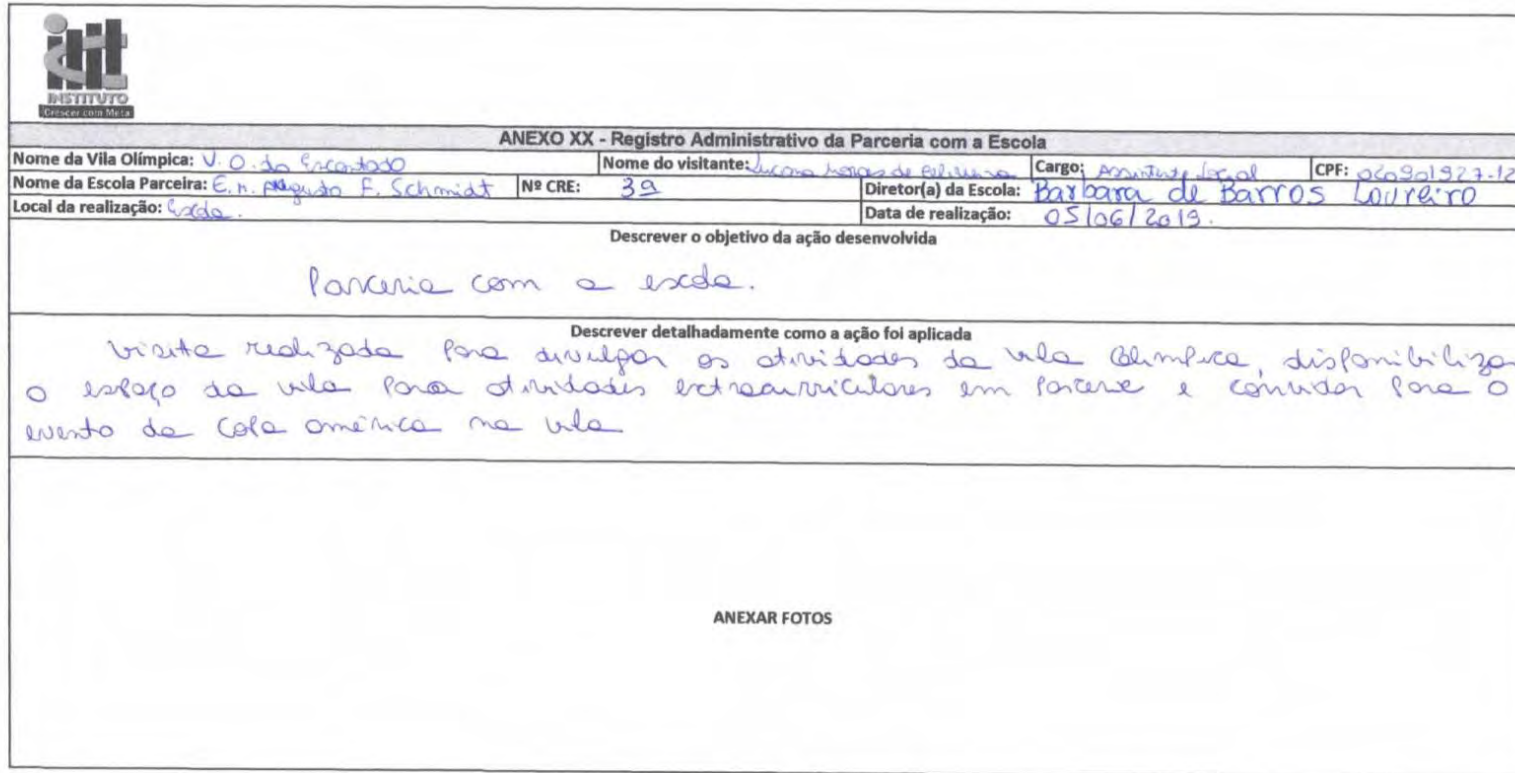 INSTITUTO
Crescer com Meta
ANEXO XX - Registro Administrativo da Parceria com a Escola
Nome da Vila Olímpica: V. O. do Encantado Nome do visitante: de Cargo: Assistente Social CPF:
Nome da Escola Parceira: E. M. Augusto F. Schmidt Nº CRE: 3ª Diretor(a) da Escola: Barbara de Barros Loureiro
Local da realização: Escola. Data de realização: 05/06/2019.
Descrever o objetivo da ação desenvolvida
Parceria com a escola.
Descrever detalhadamente como a ação foi aplicada
Visita realizada para divulgar as atividades da vila Olímpica, disponibilizar
o espaço da vila para atividades extracurriculares em parceria e convidar para o
evento da Copa américa na vila
ANEXAR FOTOS